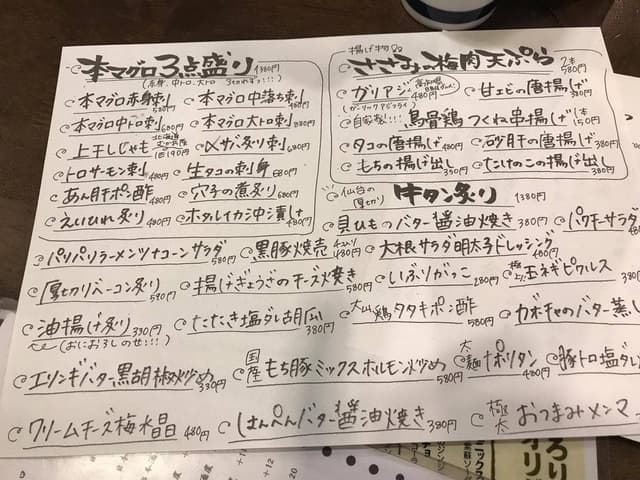 本マグロ3点盛り 1380円
(赤身、中トロ、大トロ 3切れずつ!!!)
本マグロ赤身刺 580円
本マグロ中落ち刺 480円
本マグロ中トロ刺 680円
本マグロ大トロ刺 780円
上干ししゃも 1匹190円
〆サバ炙り刺 680円
トロサーモン刺 480円
生タコの刺身 680円
あん肝ポン酢 480円
穴子の煮炙り 680円
えいひれ炙り 480円
ホタルイカ沖漬け 480円
揚げ物
ささみの梅肉天ぷら 2本 580円
ガリアジ 480円
(ガーリックアジフライ)
甘エビの唐揚げ 380円
自家製!! 烏骨鶏つくね串揚げ 1本 150円
タコの唐揚げ 480円
砂肝の唐揚げ 380円
もちの揚げ出し 350円
たけのこの揚げ出し 380円
仙台の厚切り 牛タン炙り 1380円
貝ひものバター醤油焼き 380円
パクチーサラダ
パリパリラーメンツナコーンサラダ 580円
黒豚焼売 4コ入り 480円
大根サラダ明太子ドレッシング 480円
厚切りベーコン炙り 580円
揚げぎょうざのチーズ焼き 580円
いぶりがっこ 280円
極上 玉ネギピクルス 380円
油揚げ炙り 330円
(おにおろしのせ!!!)
たたき塩ダレ胡瓜 380円
大山鶏タタキポン酢 580円
カボチャのバター蒸し
エリンギバター黒胡椒炒め 330円
国産もち豚ミックスホルモン炒め 580円
太麺ナポリタン 480円
豚トロ塩ダレ
クリームチーズ梅水晶 480円
はんぺんバター醤油焼き 380円
極太おつまみメンマ